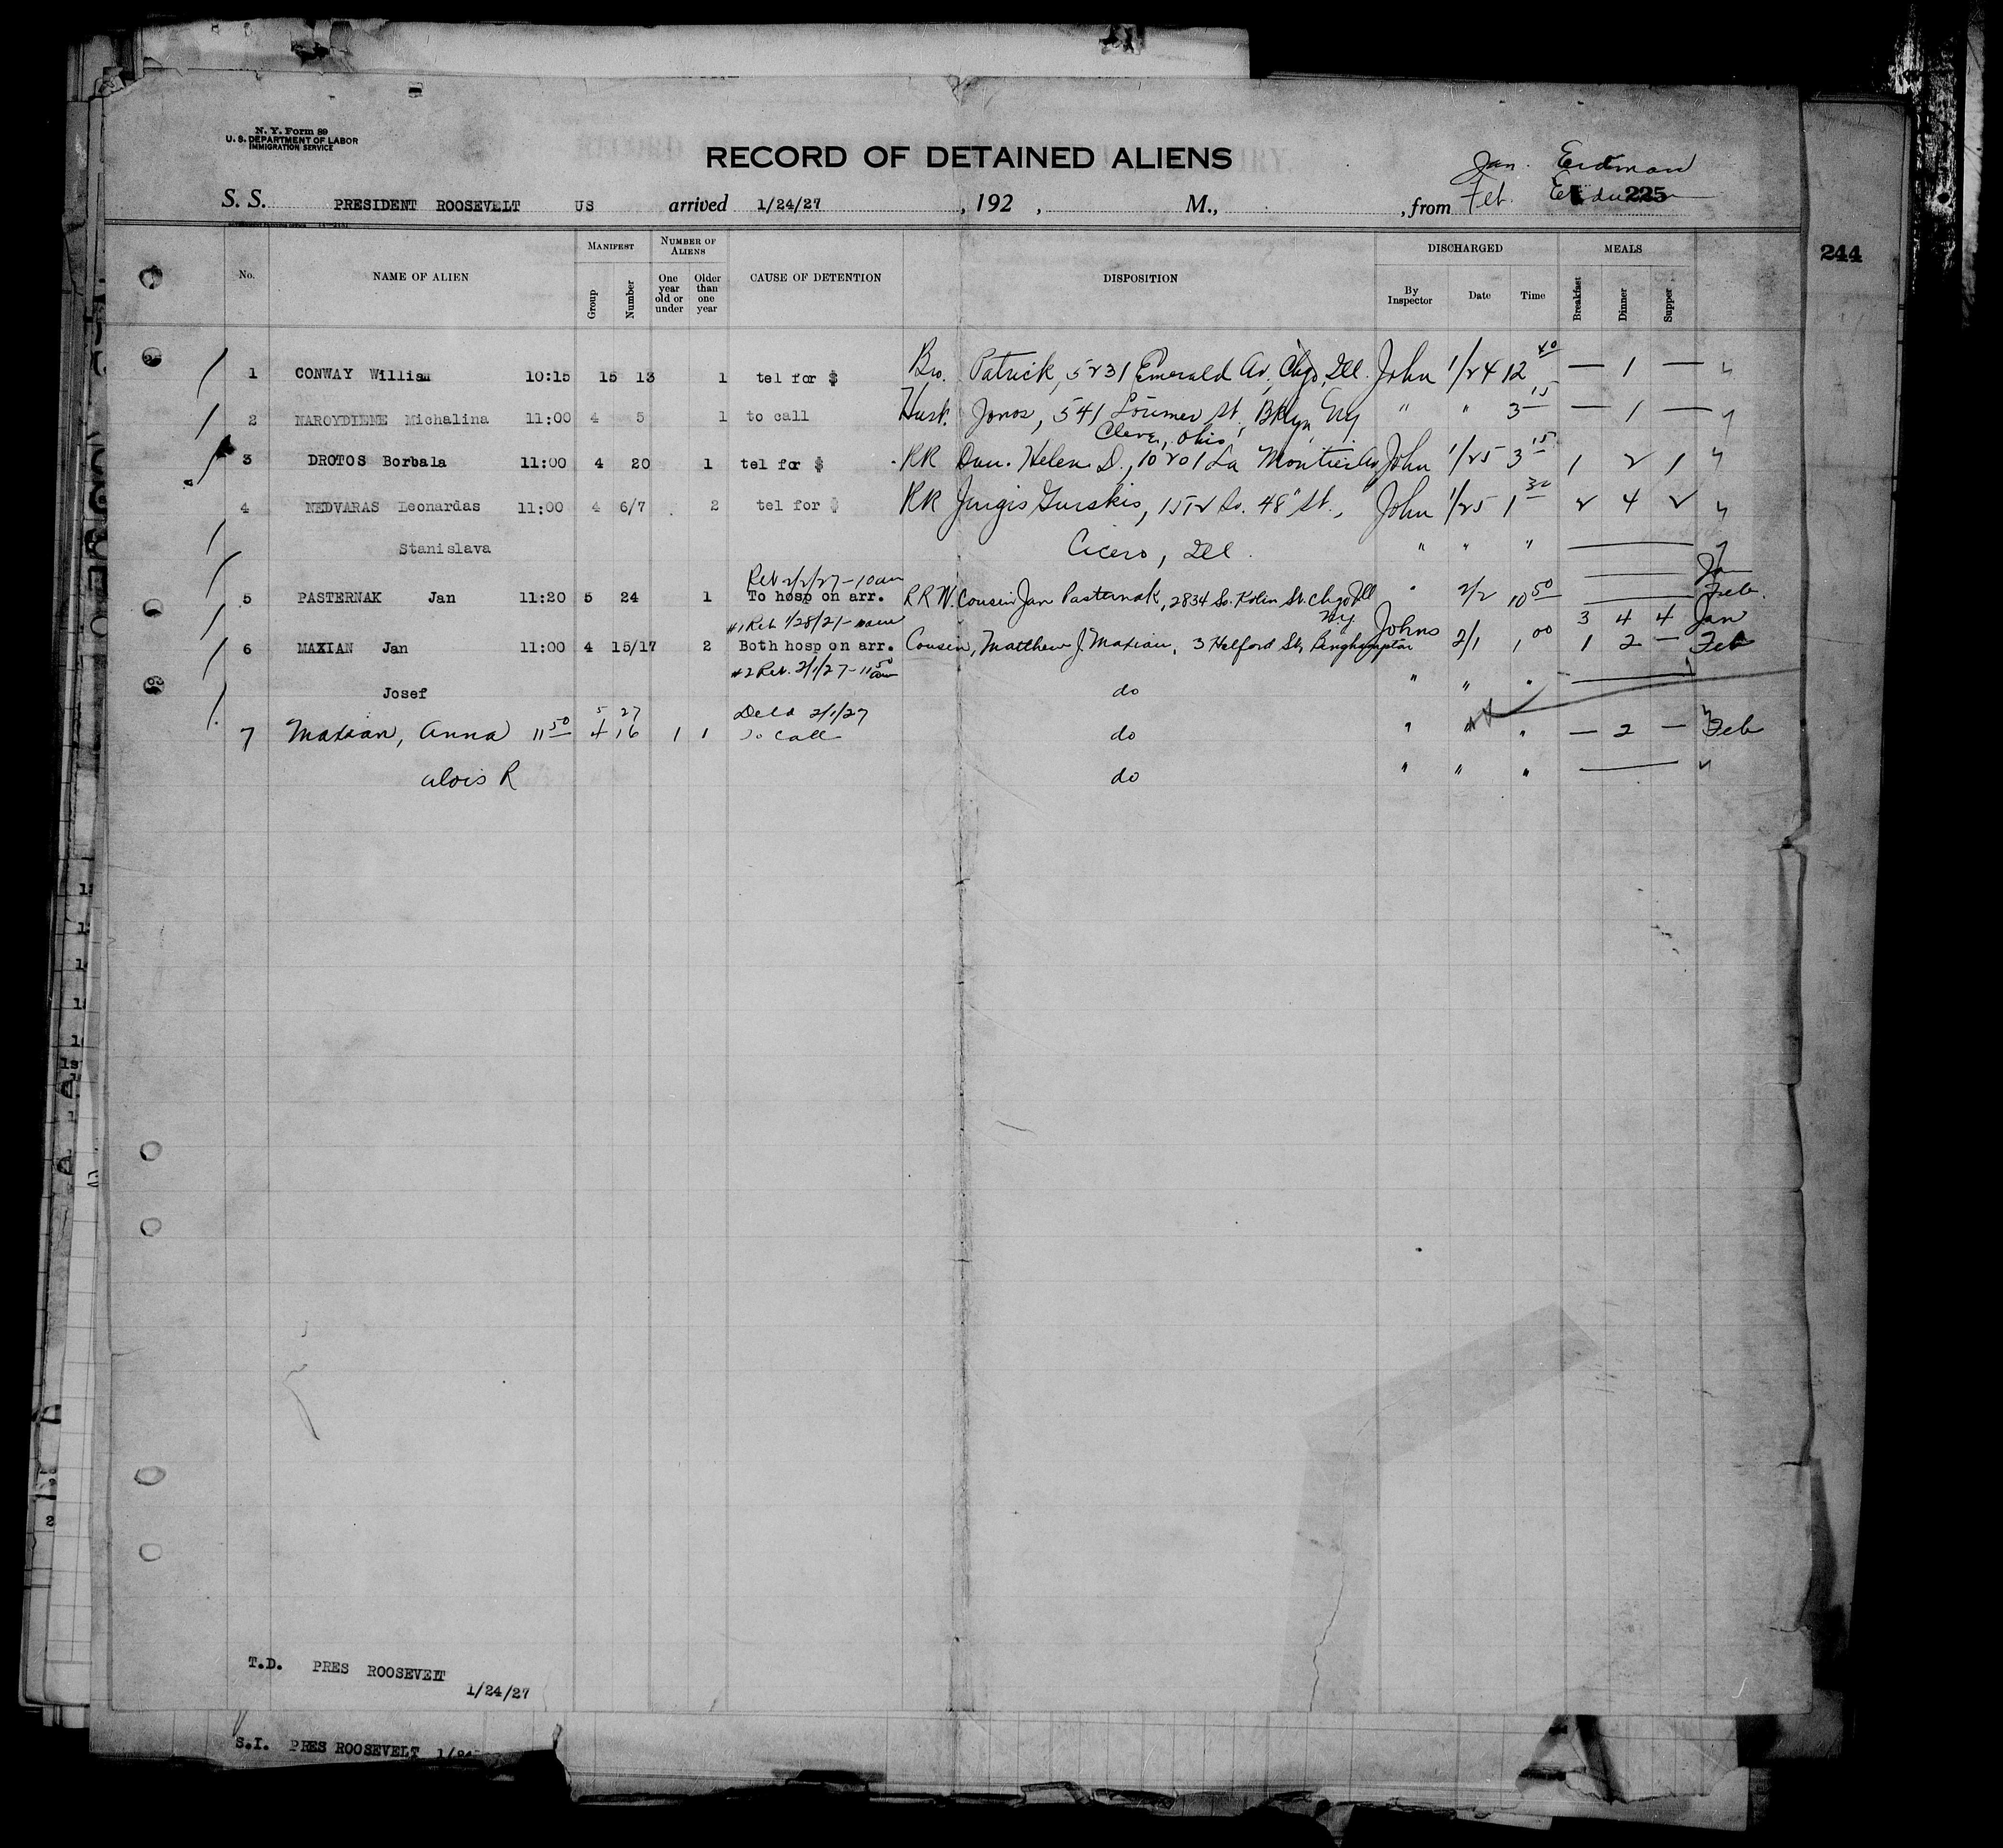 N. Y. Form 89
U. S. DEPARTMENT OF LABOR
IMMIGRATION SERVICE
RECORD OF DETAINED ALIENS
Jan. Erdman
S. S. PRESIDENT ROOSEVELT US arrived 1/24/27, 192 , M., , from Feb. 225
244
No. NAME OF ALIEN MANIFEST Group Number NUMBER OF ALIENS One year old or under Older than one year CAUSE OF DETENTION DISPOSITION DISCHARGED By Inspector Date Time MEALS Breakfast Dinner Supper
1 CONWAY William 10:15 15 13 1 tel for $ Bro. Patrick, 5231 Emerald Av, Chgo, Ill. John 1/24 12 40 — 1 — "
2 NAROYDIENE Michalina 11:00 4 5 1 to call Husb. Jonos, 541 Lorimer St, Bklyn, NY " " 3 15 — 1 — "
Cleve, Ohio
3 DROTOS Borbala 11:00 4 20 1 tel for $ RR Dau. Helen D., 10201 La Montier Av John 1/25 3 15 1 2 1 "
4 NEDVARAS Leonardas 11:00 4 6/7 2 tel for $ RR Jurgis Gurskis, 1512 So. 48" St., John 1/25 1 30 2 4 2 "
Stanislava Cicero, Ill. " " " — "
Ret 2/2/27 - 10 am — Jan
5 PASTERNAK Jan 11:20 5 24 1 To hosp on arr. RRW. Cousin Jan Pasternak, 2834 So. Kolin St. Chgo Ill " 2/2 10 50 — Feb.
#1 Ret 1/28/27 - am N.Y. 3 4 4 Jan
6 MAXIAN Jan 11:00 4 15/17 2 Both hosp on arr. Cousin, Matthew J. Maxian, 3 Halford St, Binghampton Johns 2/1 1 00 1 2 — Feb
#2 Ret. 2/1/27 - 11 50 am
Josef do " " " — "
5 27 Detd 2/1/27
7 Maxian, Anna 11 50 4 16 1 1 To call do " " " — 2 — Feb
Alois R do " " " — "
T.D. PRES ROOSEVELT
1/24/27
S.I. PRES ROOSEVELT 1/24